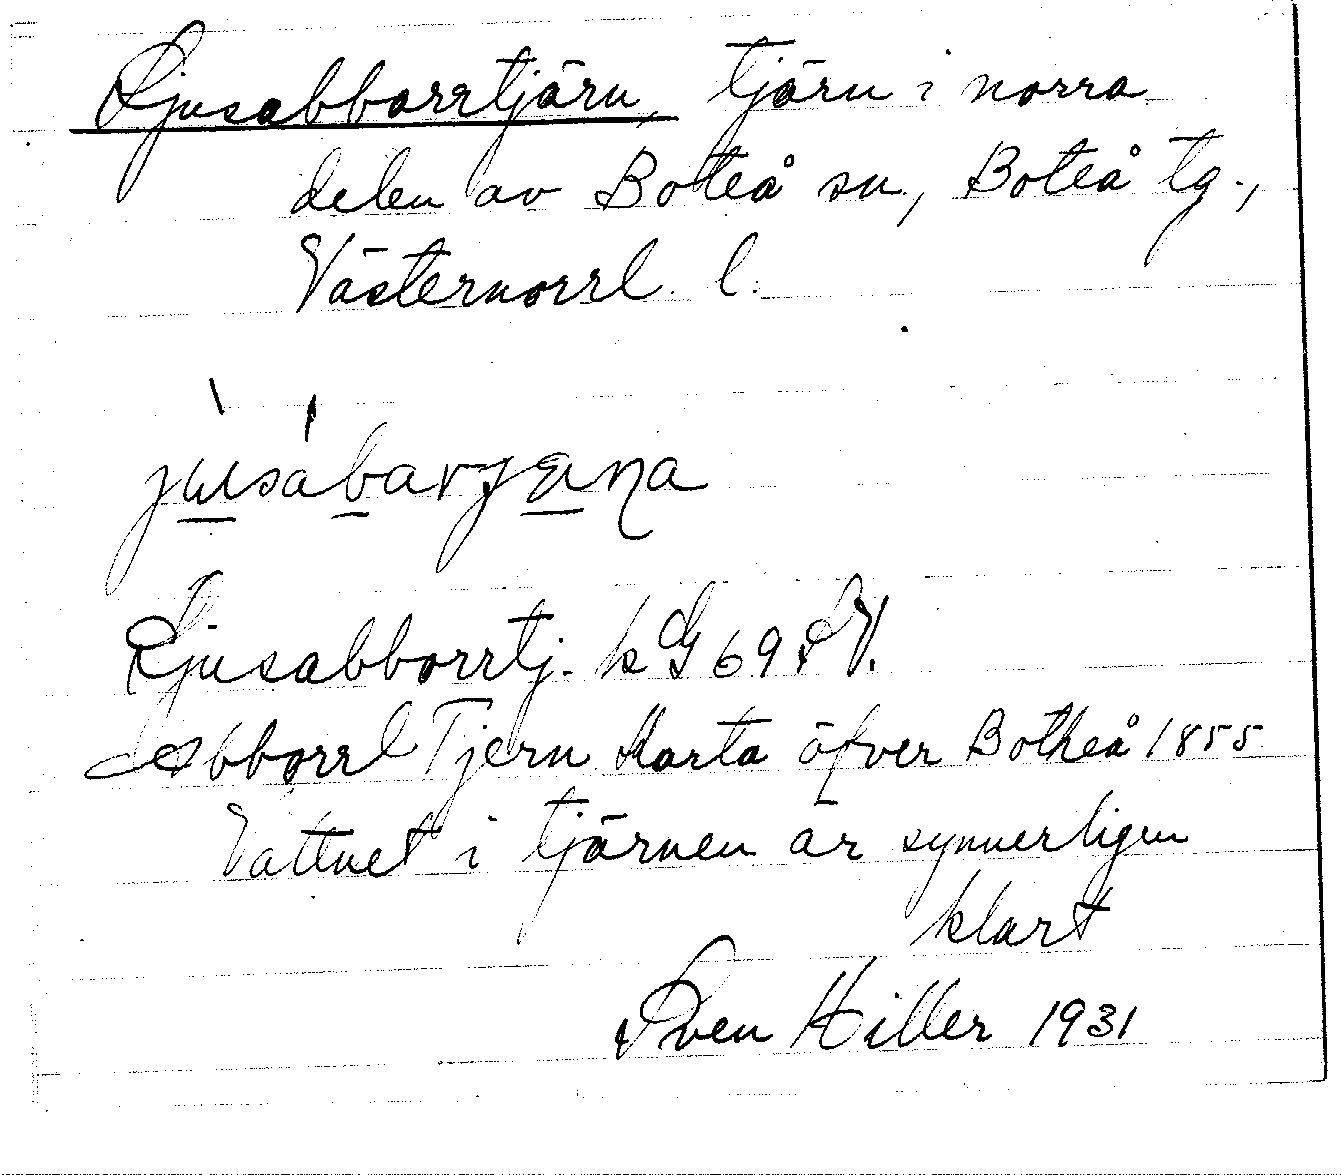 Ljusabborrtjärn, tjärn i norra
delen av Boteå sn, Boteå tg.,
Västernorrl. l.
Ljusabborrtj. k G 69 SV.
Abborrl Tjern Karta öfver Botheå 1855
Vattnet i tjärnen är synnerligen
klart
Sven Hiller 1931